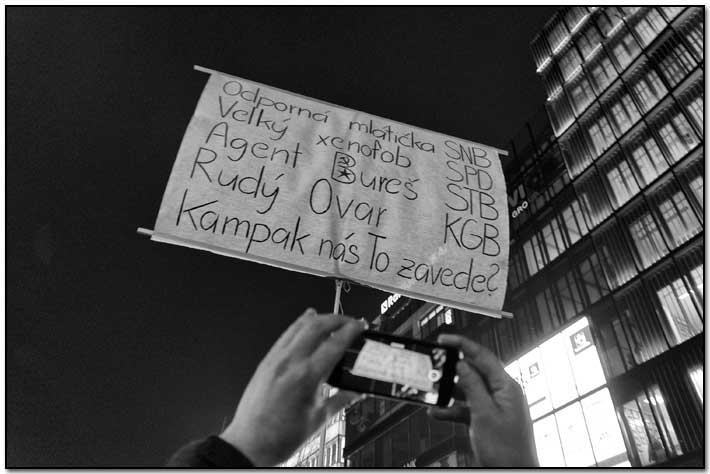 Odporná mlátička SNB
Velký xenofob SPD
Agent Bureš STB
Rudý Ovar KGB
Kampak nás To zavede?
GRO